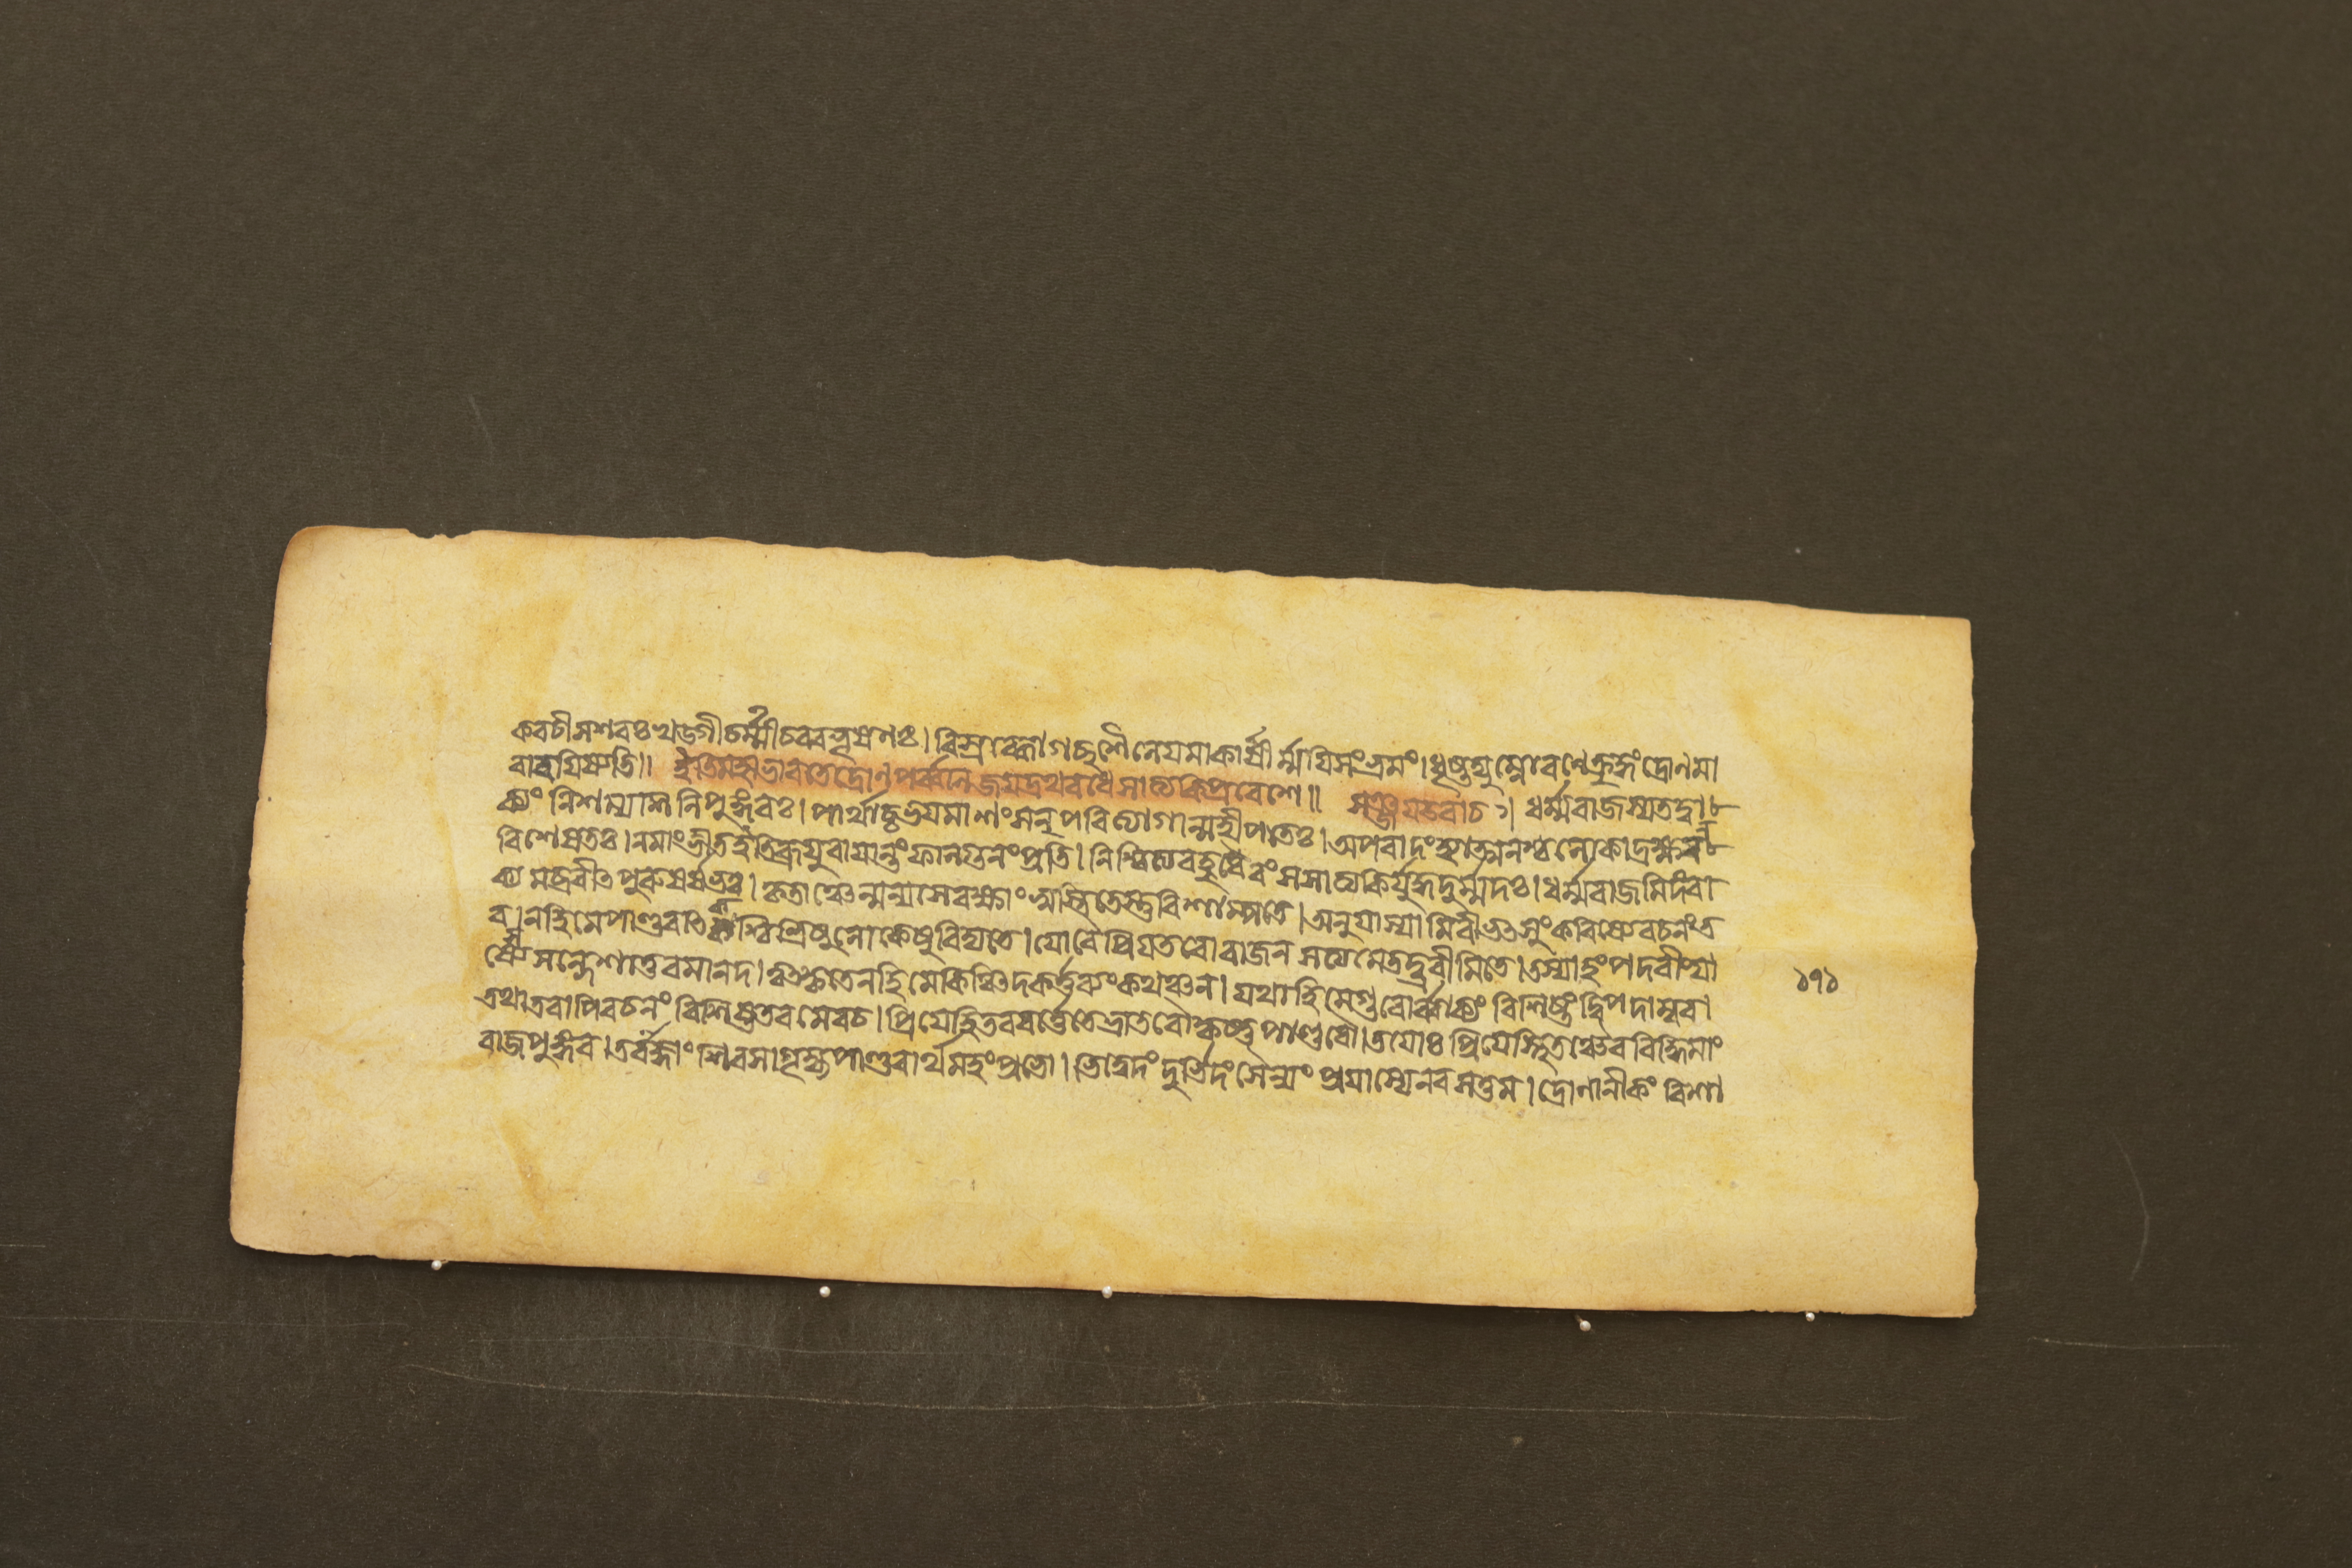 কবচীসশরঃখড্গীচর্ম্মীচবরভূষণঃ।বিস্রব্ধোগচ্ছশৈনেযমাকার্ষীর্ম্মযিসংভ্রমং।ধৃষ্টদ্যুম্নোরণেক্রুদ্ধংদ্রোণমা
বারযিষ্যতি॥ ইতিমহাভারতেদ্রোণপর্ব্বণিজযদ্রথবধেসাত্যকিপ্রবেশে॥ সঞ্জযউবাচ।ধর্ম্মরাজস্যতদ্বা
ক্যংনিশম্যশিনিপুঙ্গবঃ।পার্থাচ্চভযমাশংসন্পরিত্যাগান্মহীপতেঃ।অপবাদংহ্যাত্মনশ্চলোকাদ্রক্ষন্
বিশেষতঃ।নমাংভীতইতিব্রূযুরাযান্তংফাল্গুনংপ্রতি।নিশ্চিত্যবহুধৈবংসসাত্যকির্যুদ্ধদুর্ম্মদঃ।ধর্ম্মরাজমিদংবা
ক্যমব্রবীত্পুরুষর্ষভঃ।কৃতাঞ্চেন্মন্যসেরক্ষাংস্বস্তিতেস্তুবিশাম্পতে।অনুযাস্যামিবীভত্সুংকরিষ্যেবচনংত
ব।নহিমেপাণ্ডবাত্কশ্চিত্ত্রিষুলোকেষুবিদ্যতে।যোবৈপ্রিযতরোরাজন্সত্যমেতদ্ব্রবীমিতে।তস্যাহংপদবীংযা
স্যেসন্দেশাত্তবমানদ।ত্বত্কৃতেনহিমেকিঞ্চিদকর্ত্তব্যংকথঞ্চন।যথাহিমেগুরোর্ব্বাক্যংবিশিষ্টংদ্বিপদাম্বর।
১৭১
তথাতবাপিবচনংবিশিষ্টতরমেবচ।প্রিযেহিতববর্ত্তেতেভ্রাতরৌকৃষ্ণপাণ্ডবৌ।তযোঃপ্রিযেস্থিতঞ্চৈববিদ্ধিমাং
রাজপুঙ্গব।তবাজ্ঞাংশিরসাগৃহ্যপাণ্ডবার্থমহংপ্রভো।ভিত্বেদংদুর্ভিদংসৈন্যংপ্রযাস্যেনরসত্তম।দ্রোণানীকংবিশা